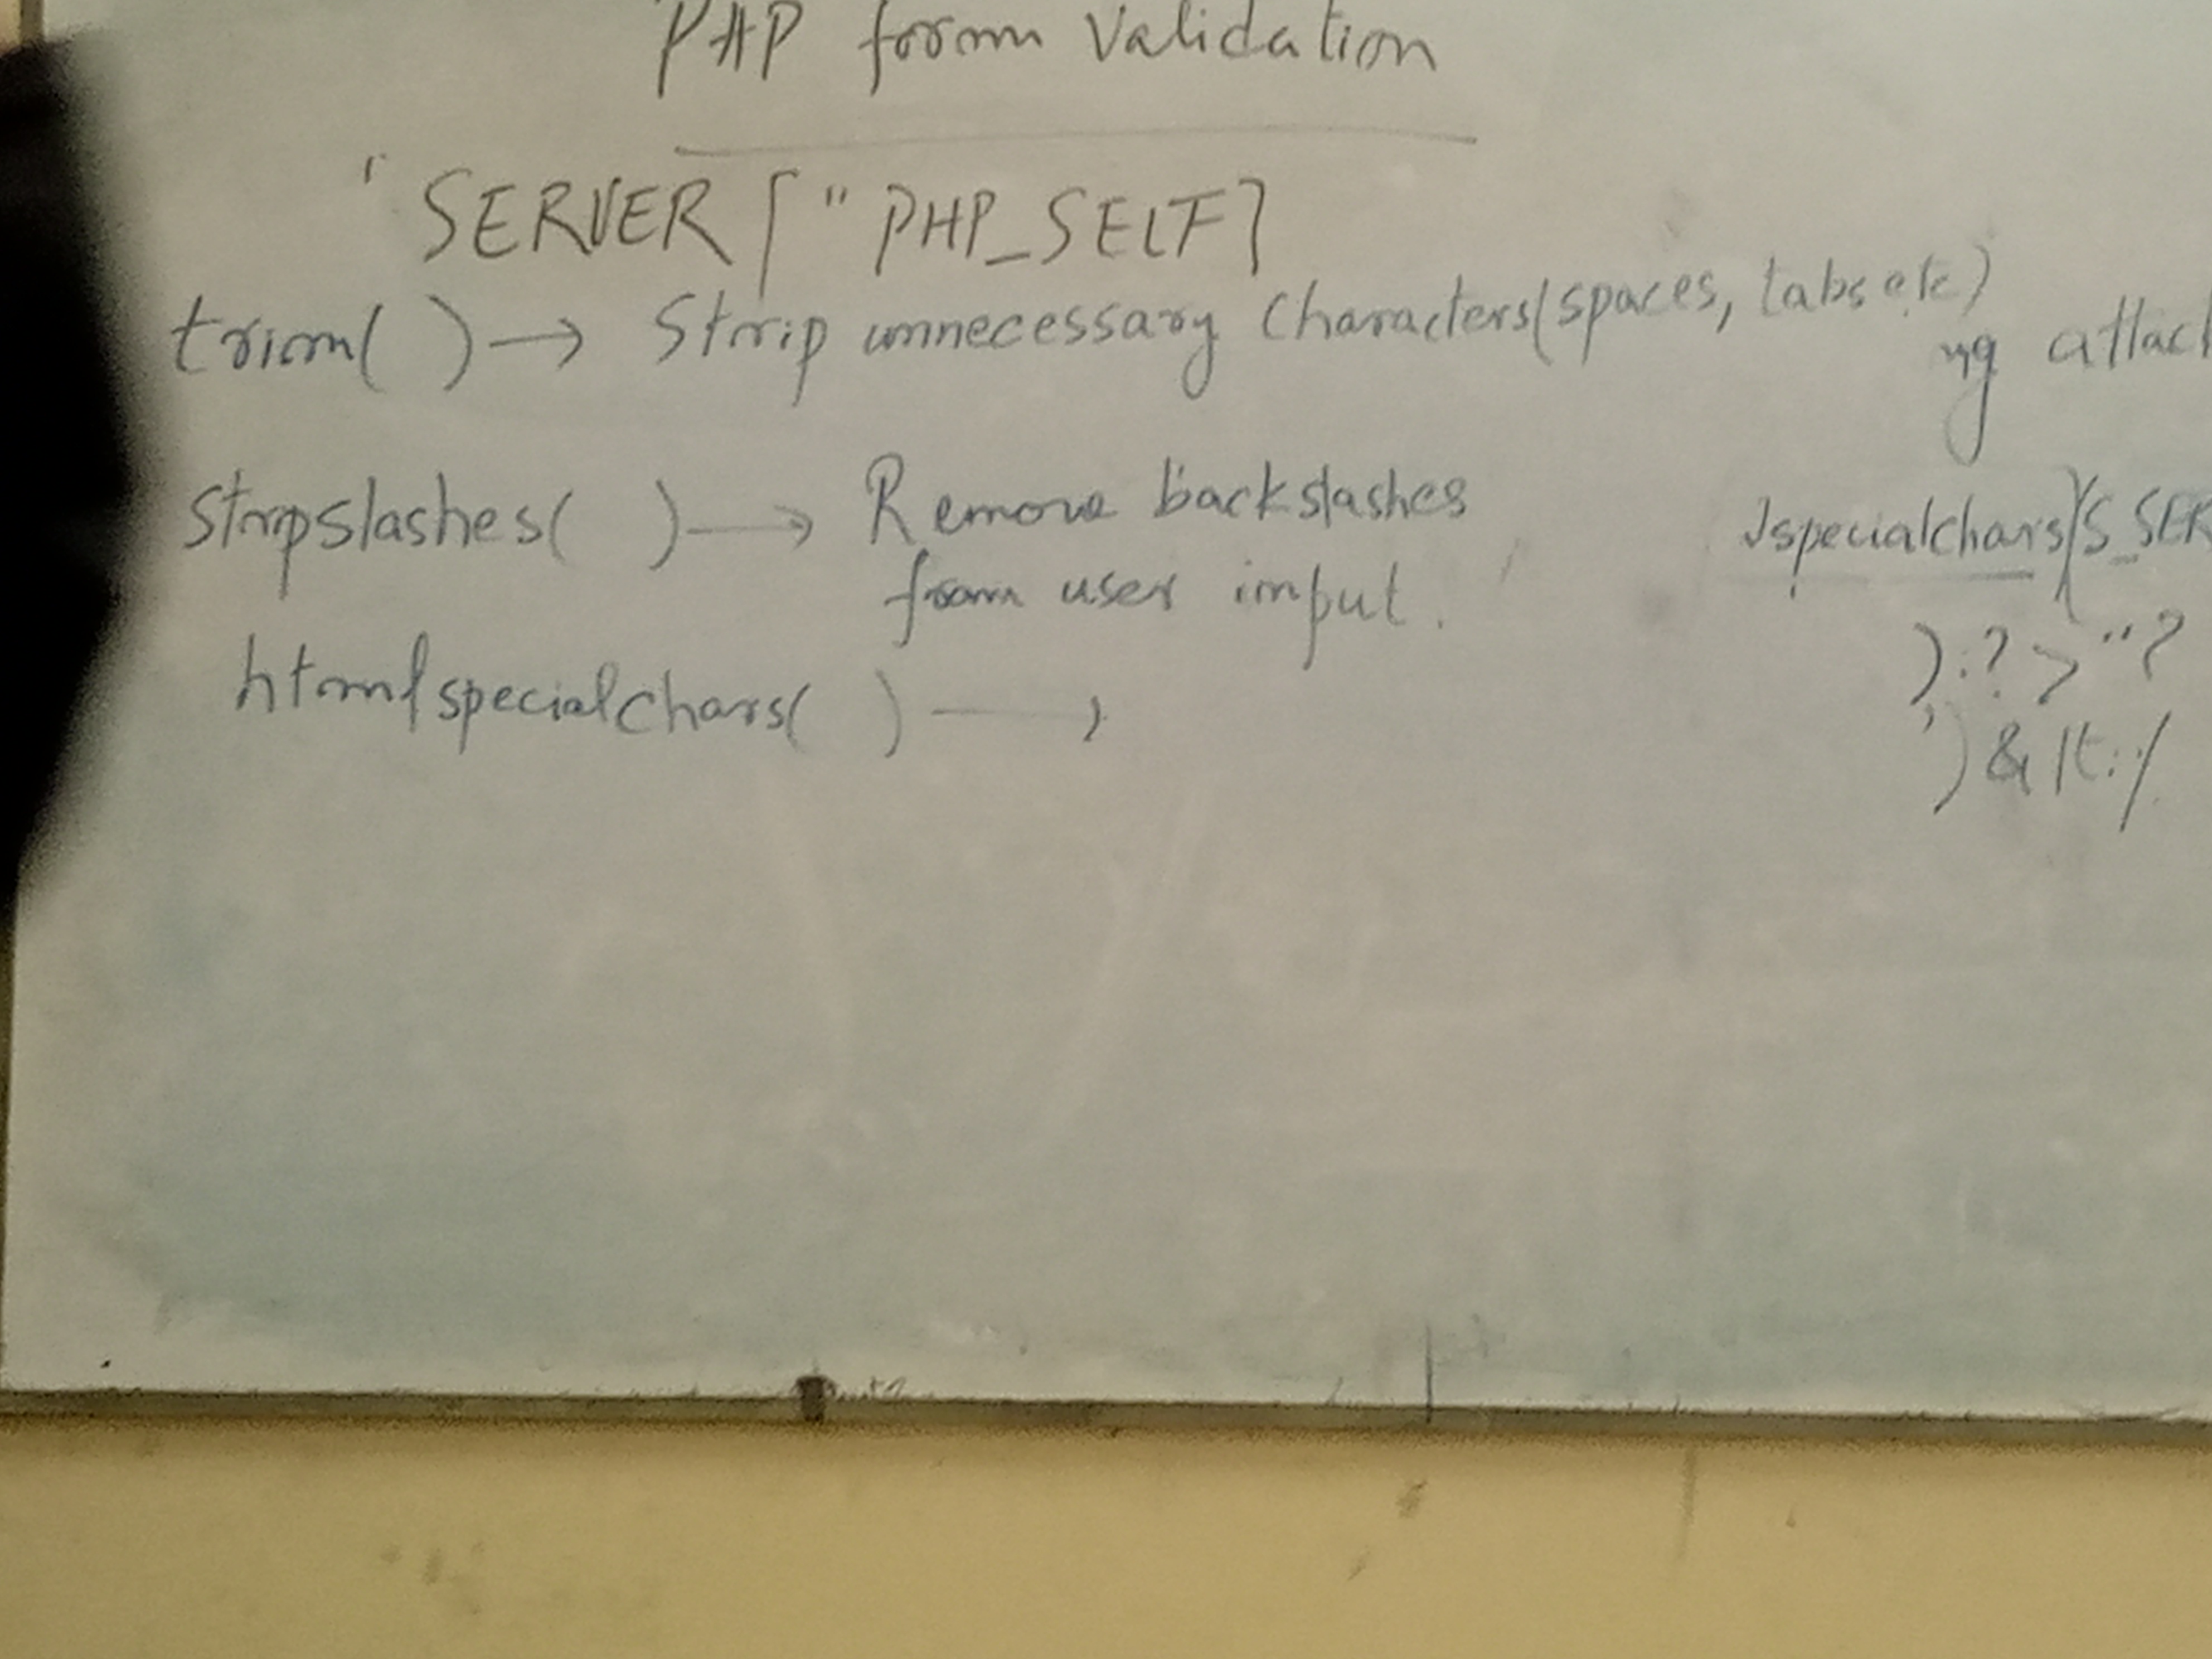 PHP form Validation
SERVER ["PHP_SELF]
trim( ) → Strip unnecessary Characters(spaces, tabs etc)
ng attack
stripslashes( ) → Remove backslashes
from user input.
specialchars($_SER
);?>"?
')&lt;/
htmlspecialchars( ) →